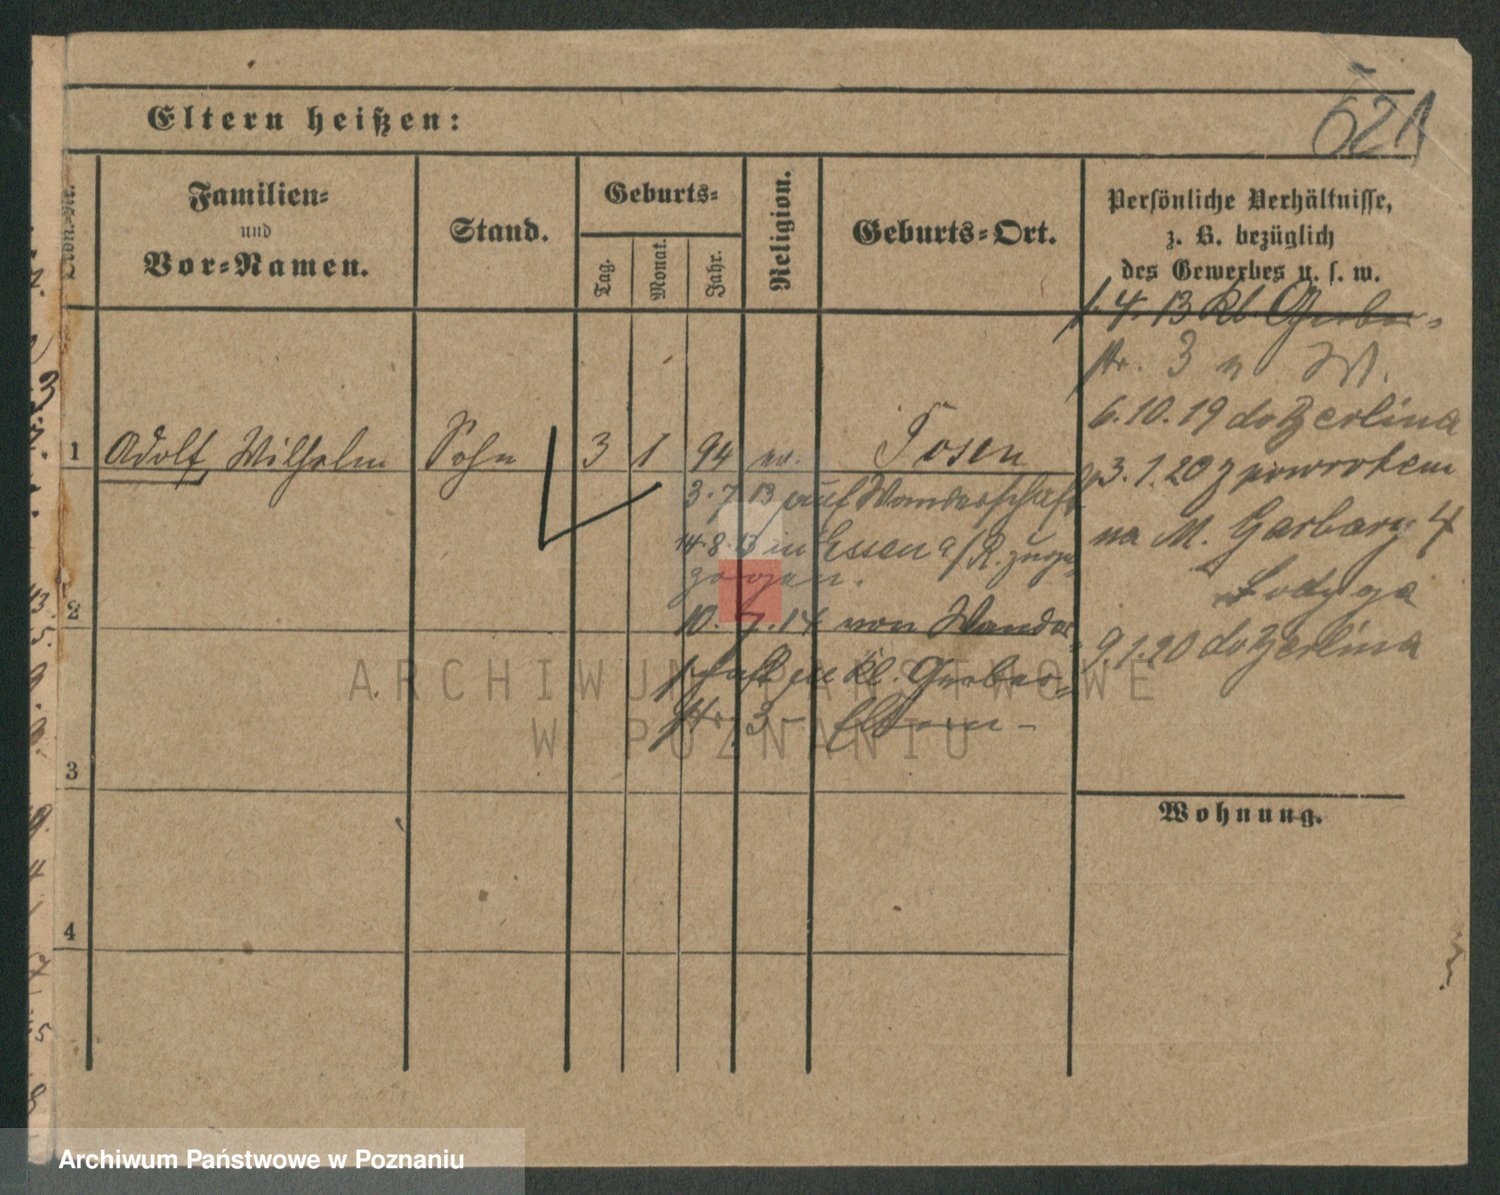 621
Eltern heißen:
Familien-
und
Vor-Namen.
Stand.
Geburts-
Tag.
Monat.
Jahr.
Religion.
Geburts-Ort.
Persönliche Verhältnisse,
z. B. bezüglich
des Gewerbes u. s. w.
1. 4. 13 kl. Gerber-
str. 3 n W.
1 Adolf, Wilhelm Sohn 3 1 94 ev. Posen
3. 7. 13 auf Wanderschaft
14. 8. 13 in Essen a/R. zuge-
zogen.
10. 7. 14 von Wander-
schaft zu kl. Gerber-
str. 3 - Eltern -
6. 10. 19 do Berlina
3. 1. 20 z powrotem
na M. Garbary 4
9. 1. 20 do Berlina
2
3
4
Wohnung.
ARCHIWUM PAŃSTWOWE
W POZNANIU
Archiwum Państwowe w Poznaniu